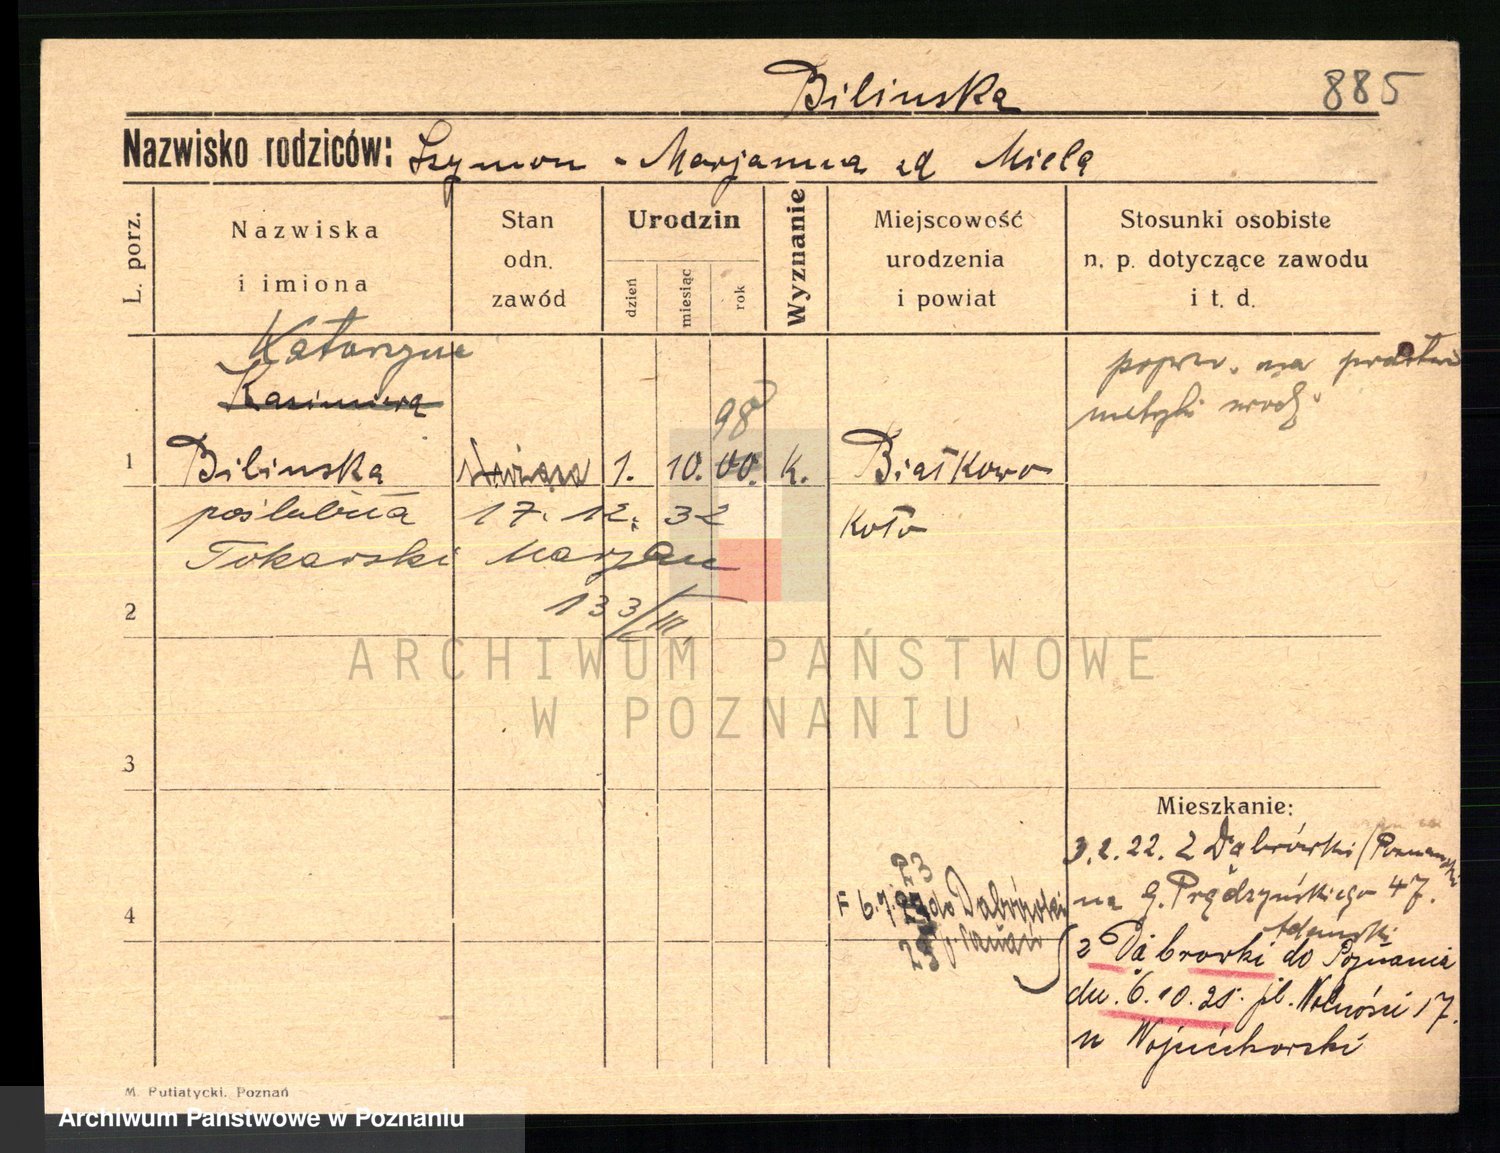 Bilinska 885
Nazwisko rodziców: Szymon - Marjanna zd Miela
L. porz.
Nazwiska i imiona
Stan odn. zawód
Urodzin
dzień
miesiąc
rok
Wyznanie
Miejscowość urodzenia i powiat
Stosunki osobiste n. p. dotyczące zawodu i t. d.
Katarzyna
Kazimiera
popr. na
metryki urodz.
98
1 Bilinska 1. 10. 00. K. Białkowo
poślubiła 17. 12. 32 Koło
Tokarski Marjan
133/III
2
3
4
Mieszkanie:
3.2.22. z Dąbrówki
na G. Prądzyńskiego 47.
do Dąbrówki
z Dąbrowki do Poznania
dn. 6.10.25. pl. Wolności 17.
u
M. Putiatycki, Poznań
ARCHIWUM PAŃSTWOWE
W POZNANIU
Archiwum Państwowe w Poznaniu